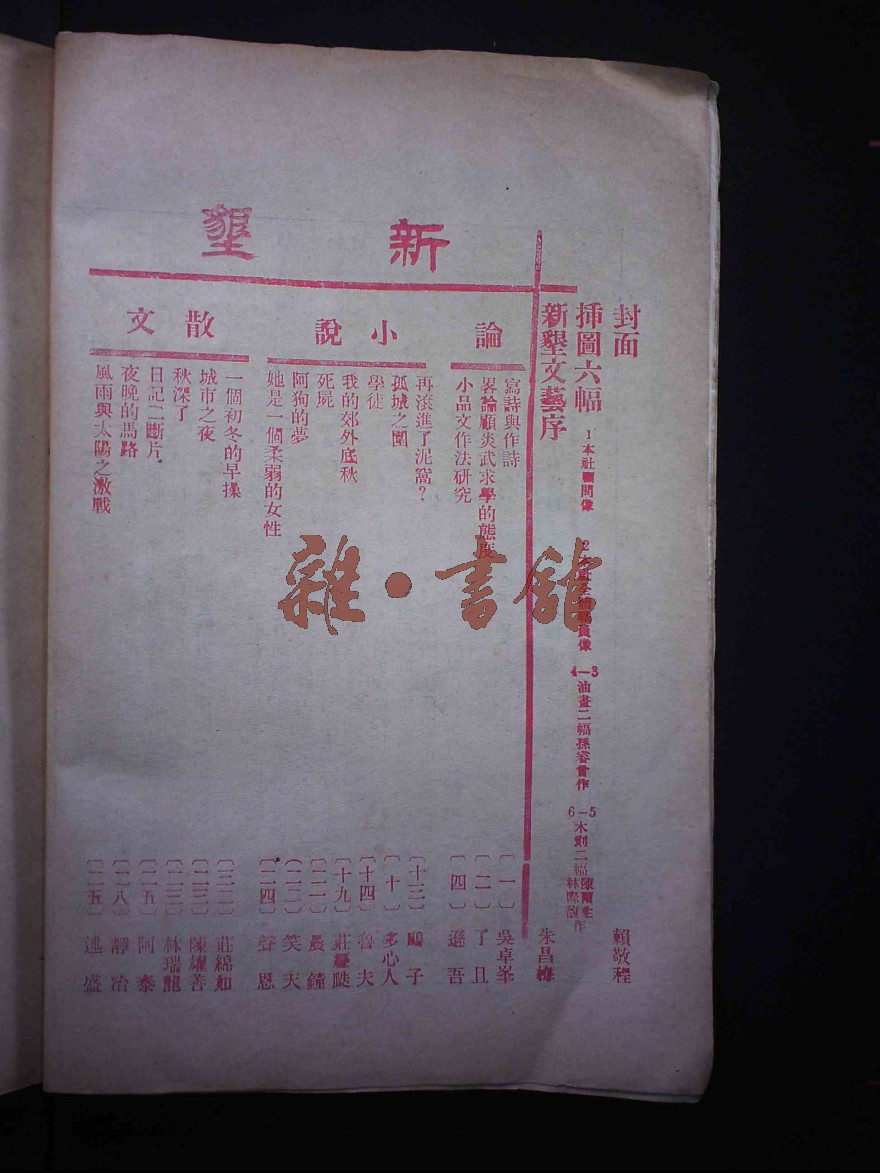 新墾
封面 賴敬程
插圖六幅 1本社顧問像 2本社全體 員像 4—3油畫二幅孫 作 6—5木刻二幅陳爾生林際馥作
新墾文藝序 朱昌梅
論
寫詩與作詩 〔一〕 吳卓峯
畧論顧炎武求學的態度 〔二〕 了且
小品文作法研究 〔四〕 遜吾
小說
再滾進了泥窩？ 〔十三〕 鷗子
孤城之圍 〔十〕 多心人
學徒 〔十四〕 魯夫
我的郊外底秋 〔十九〕 莊
死屍 晨鐘
阿狗的夢 笑天
她是一個柔弱的女性 〔二四〕 聲恩
散文
一個初冬的早操 莊綿如
城市之夜 陳燿善
秋深了 林瑞龍
日記二斷片 〔二五〕 阿泰
夜晚的馬路 〔二八〕 靜冶
風雨與太陽之激戰 〔二五〕 進盛
雜·書館